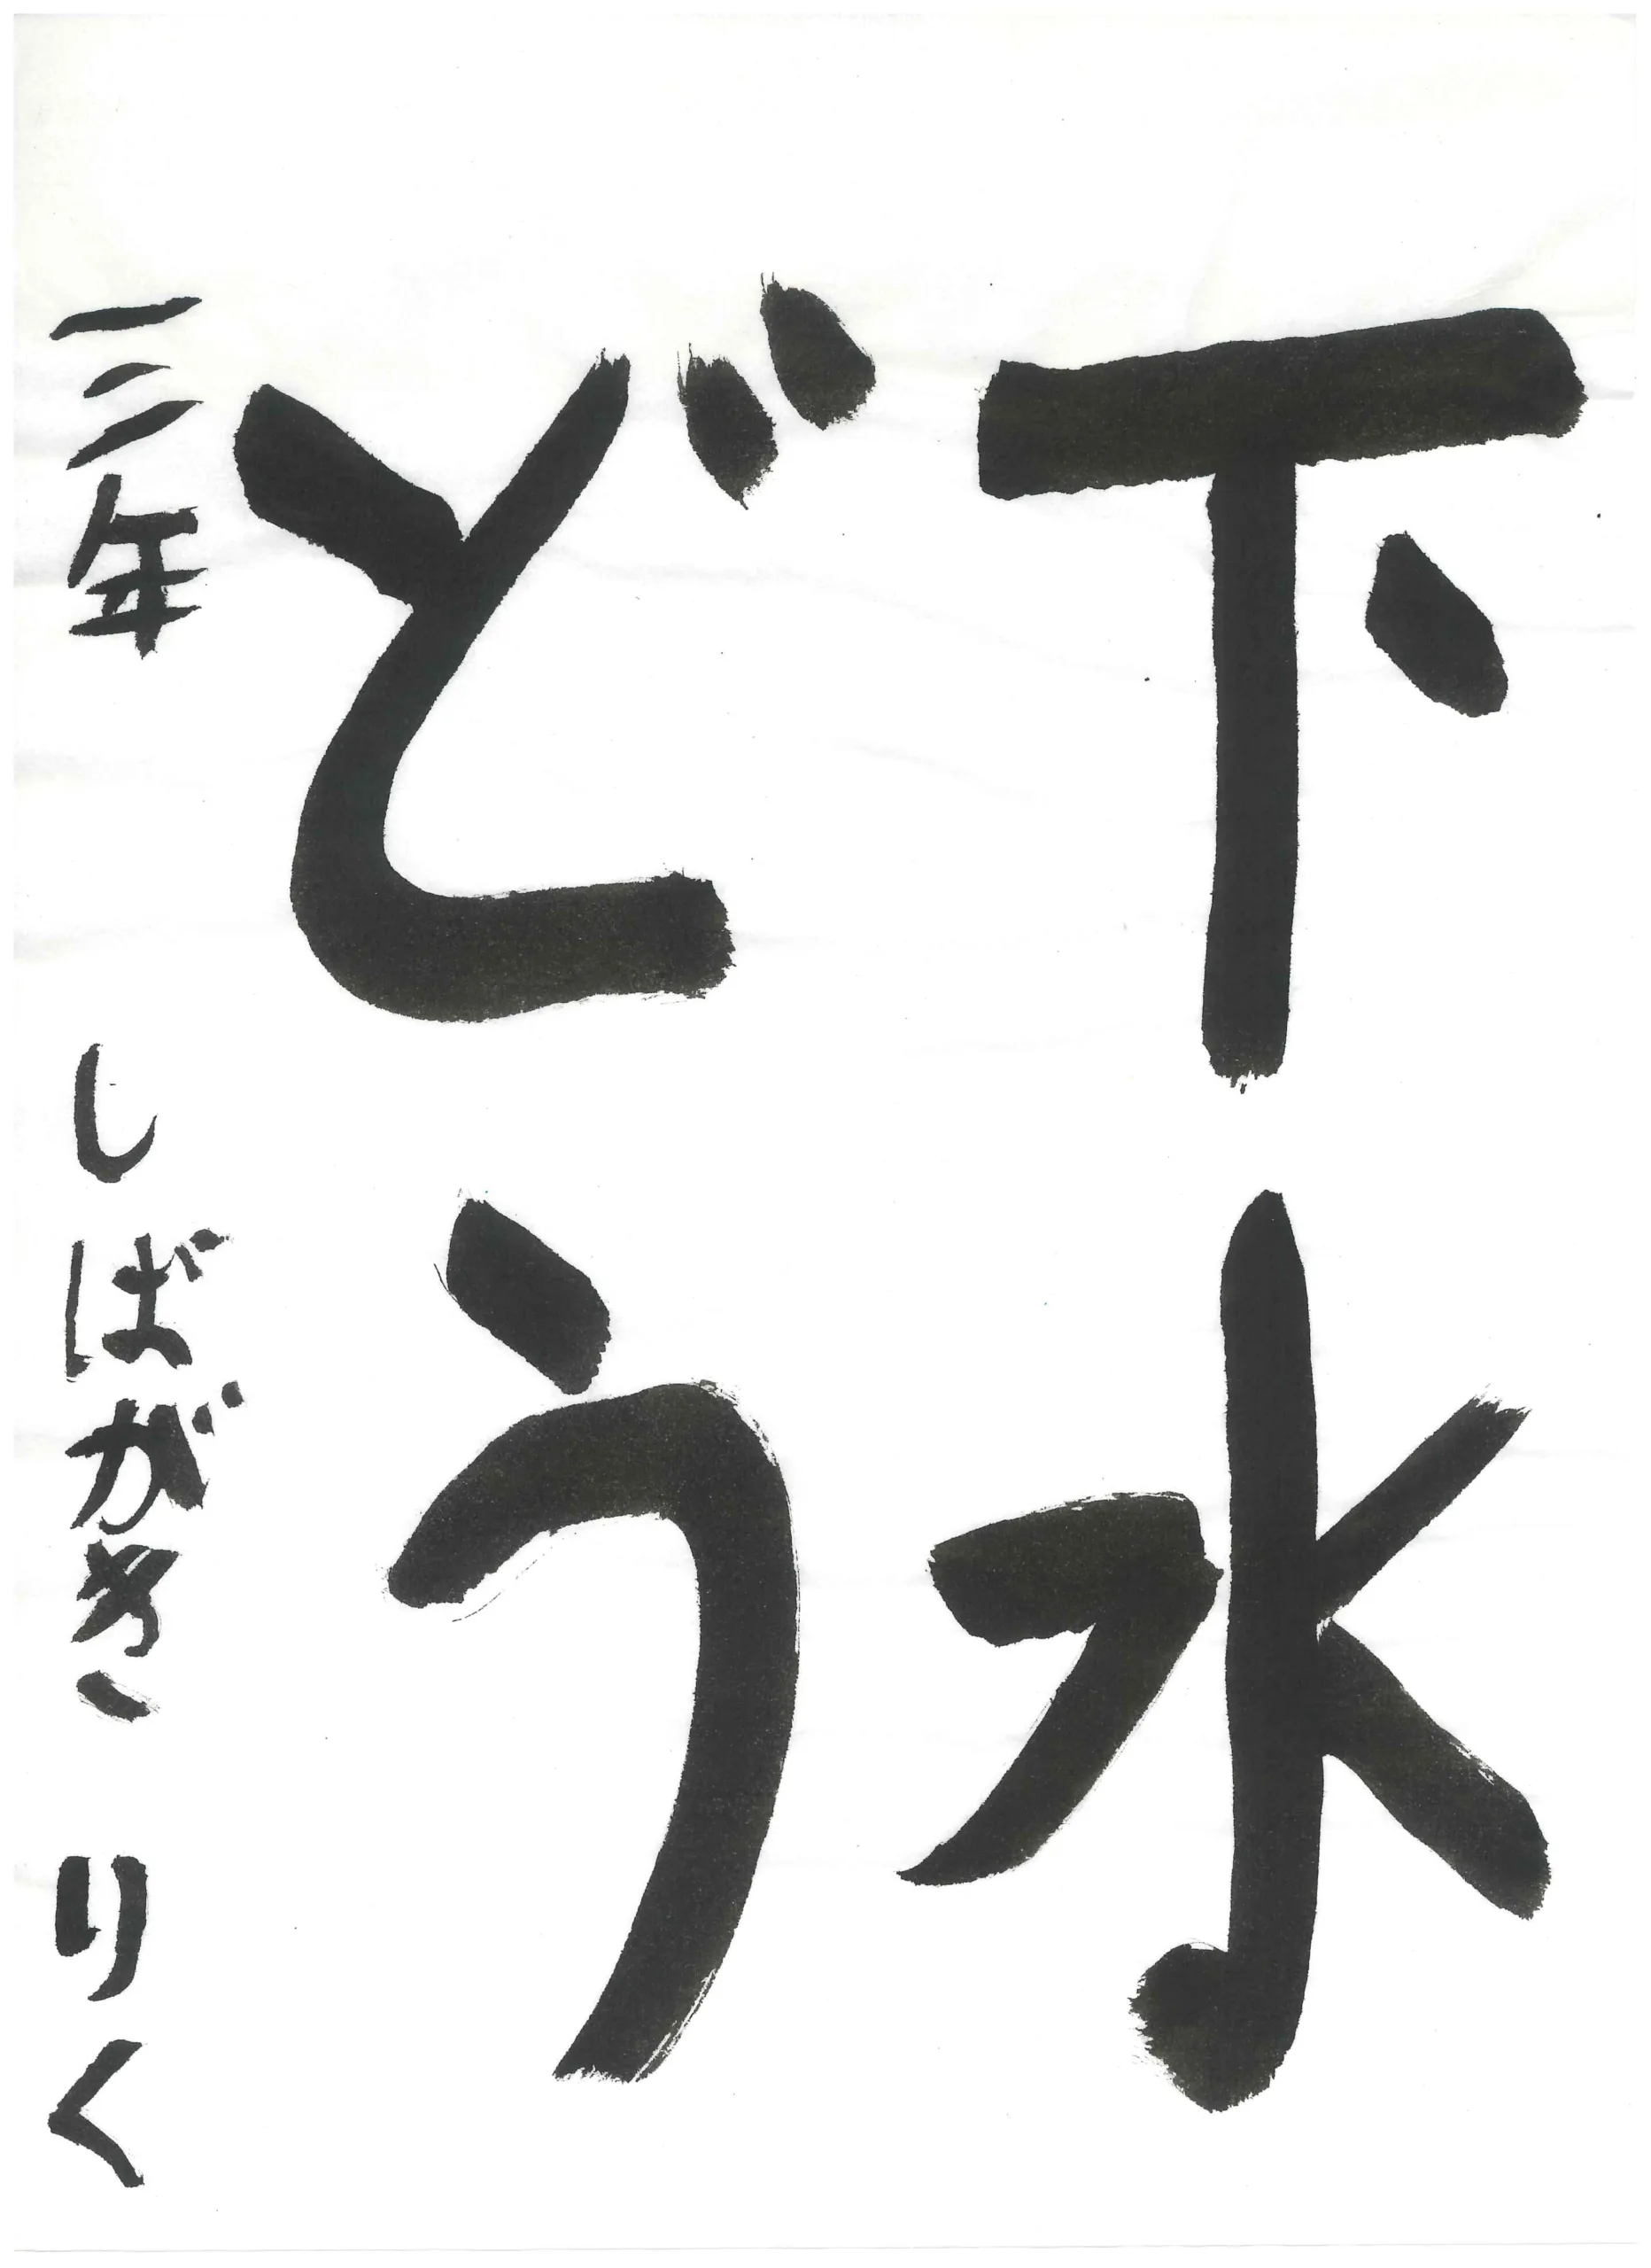 下水
どう
三年 しばがき りく